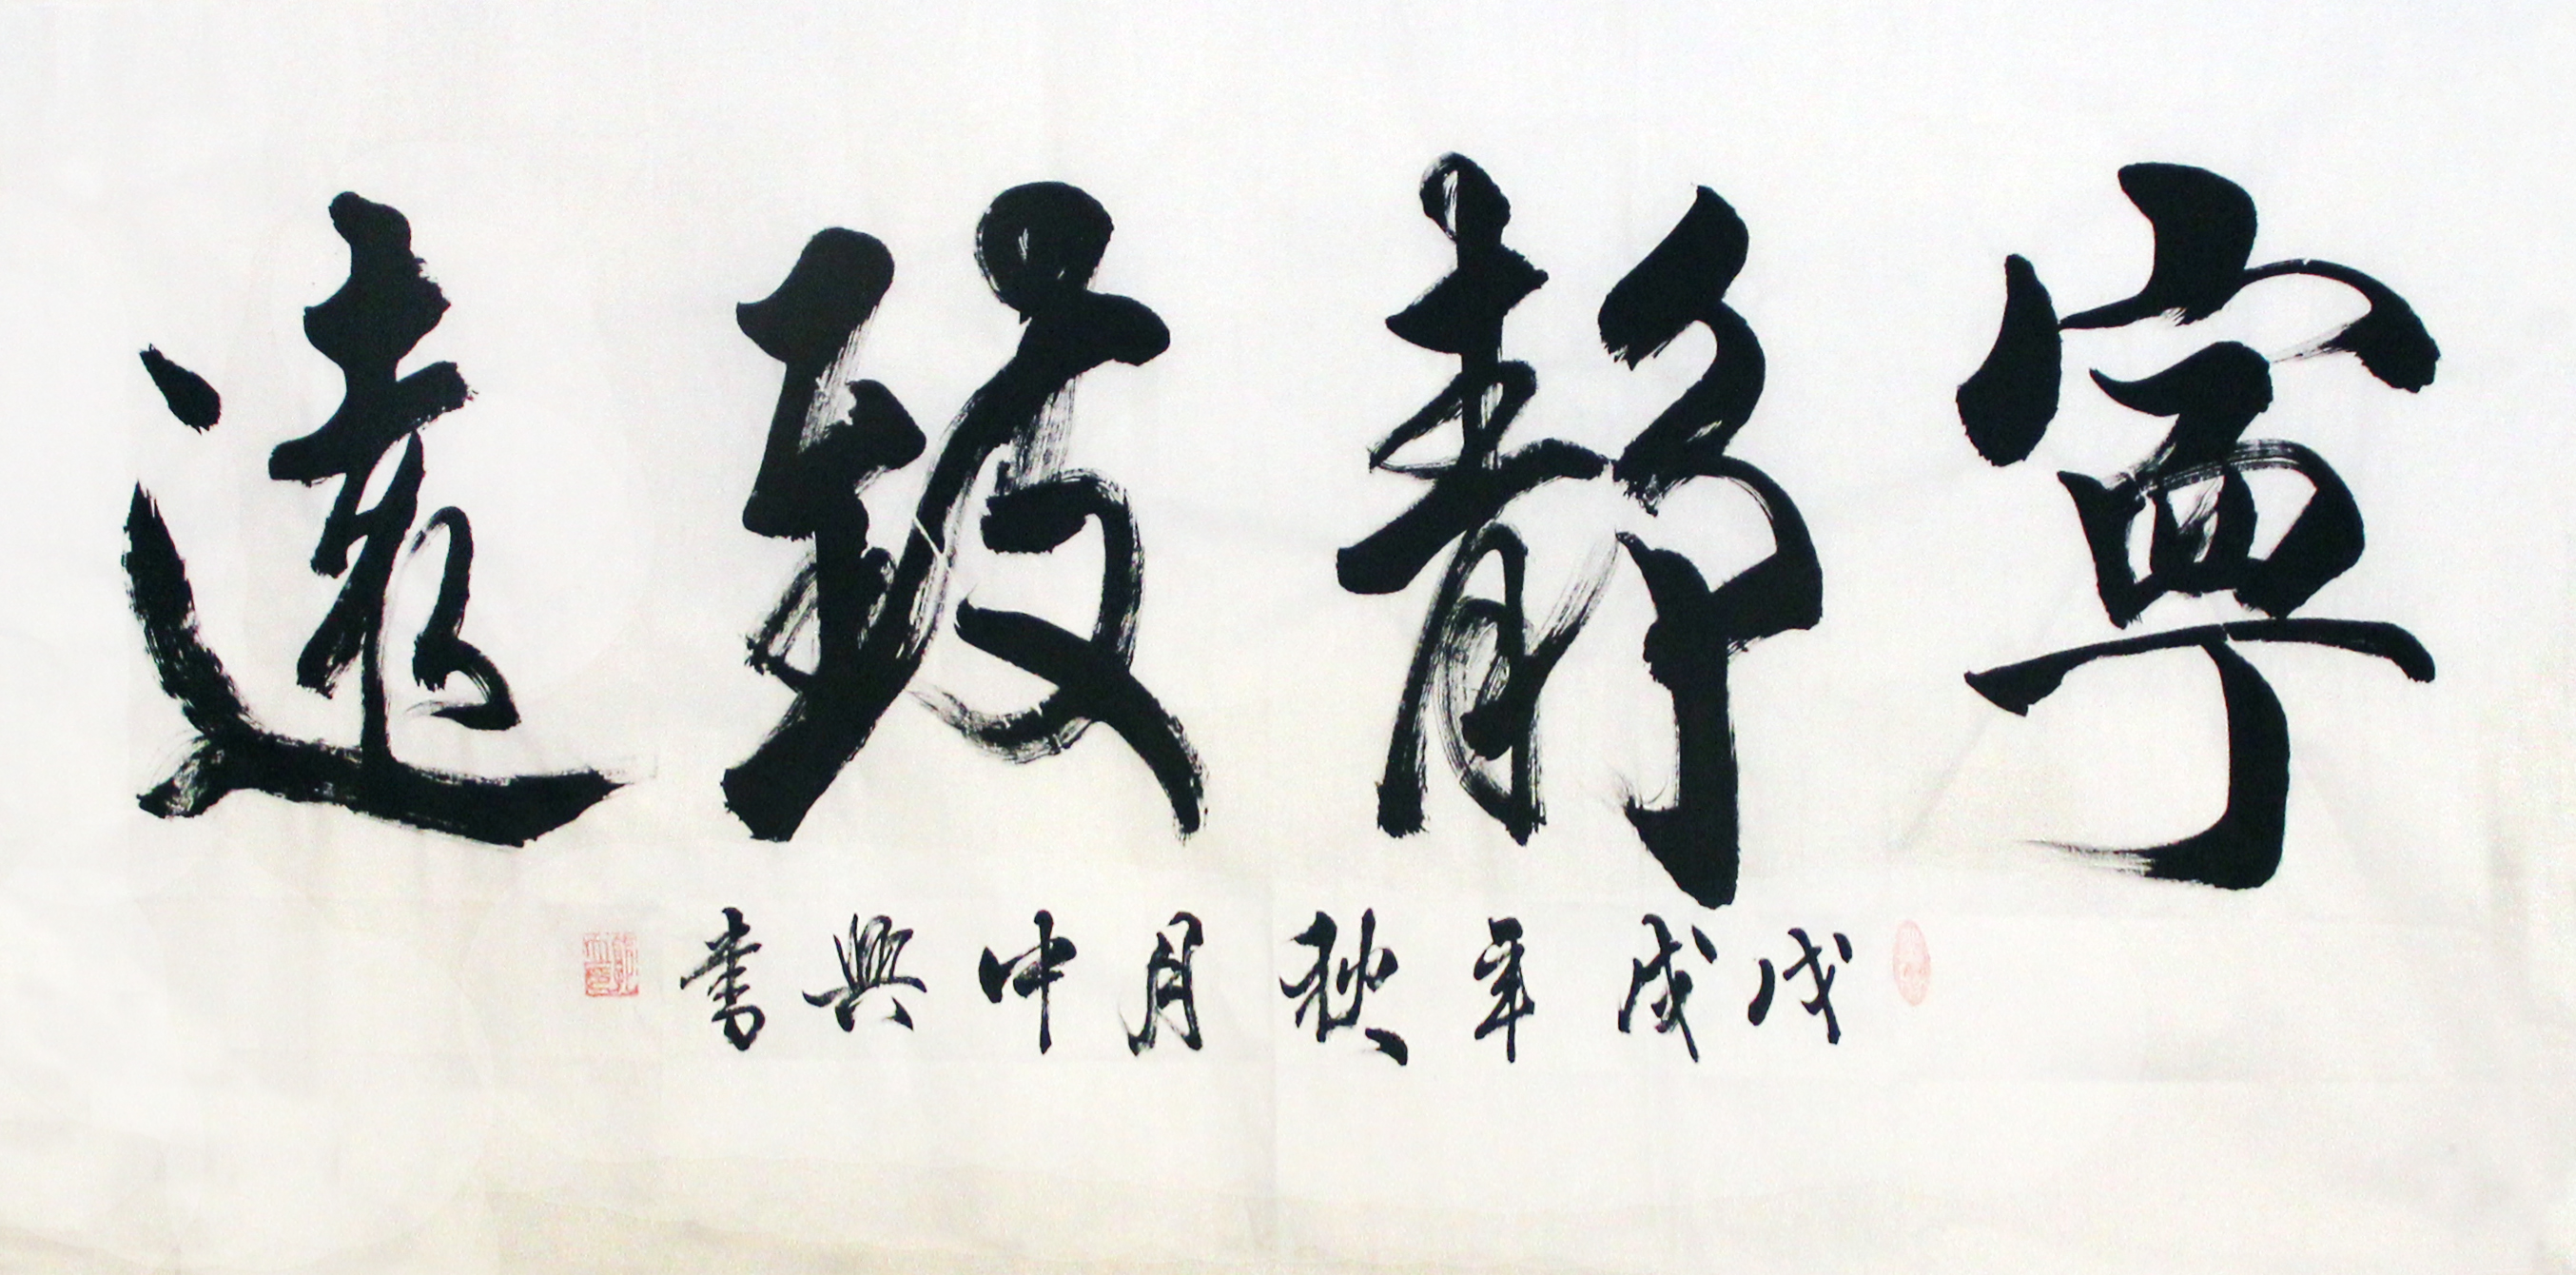 寧靜致遠
戊戌年秋月中興書